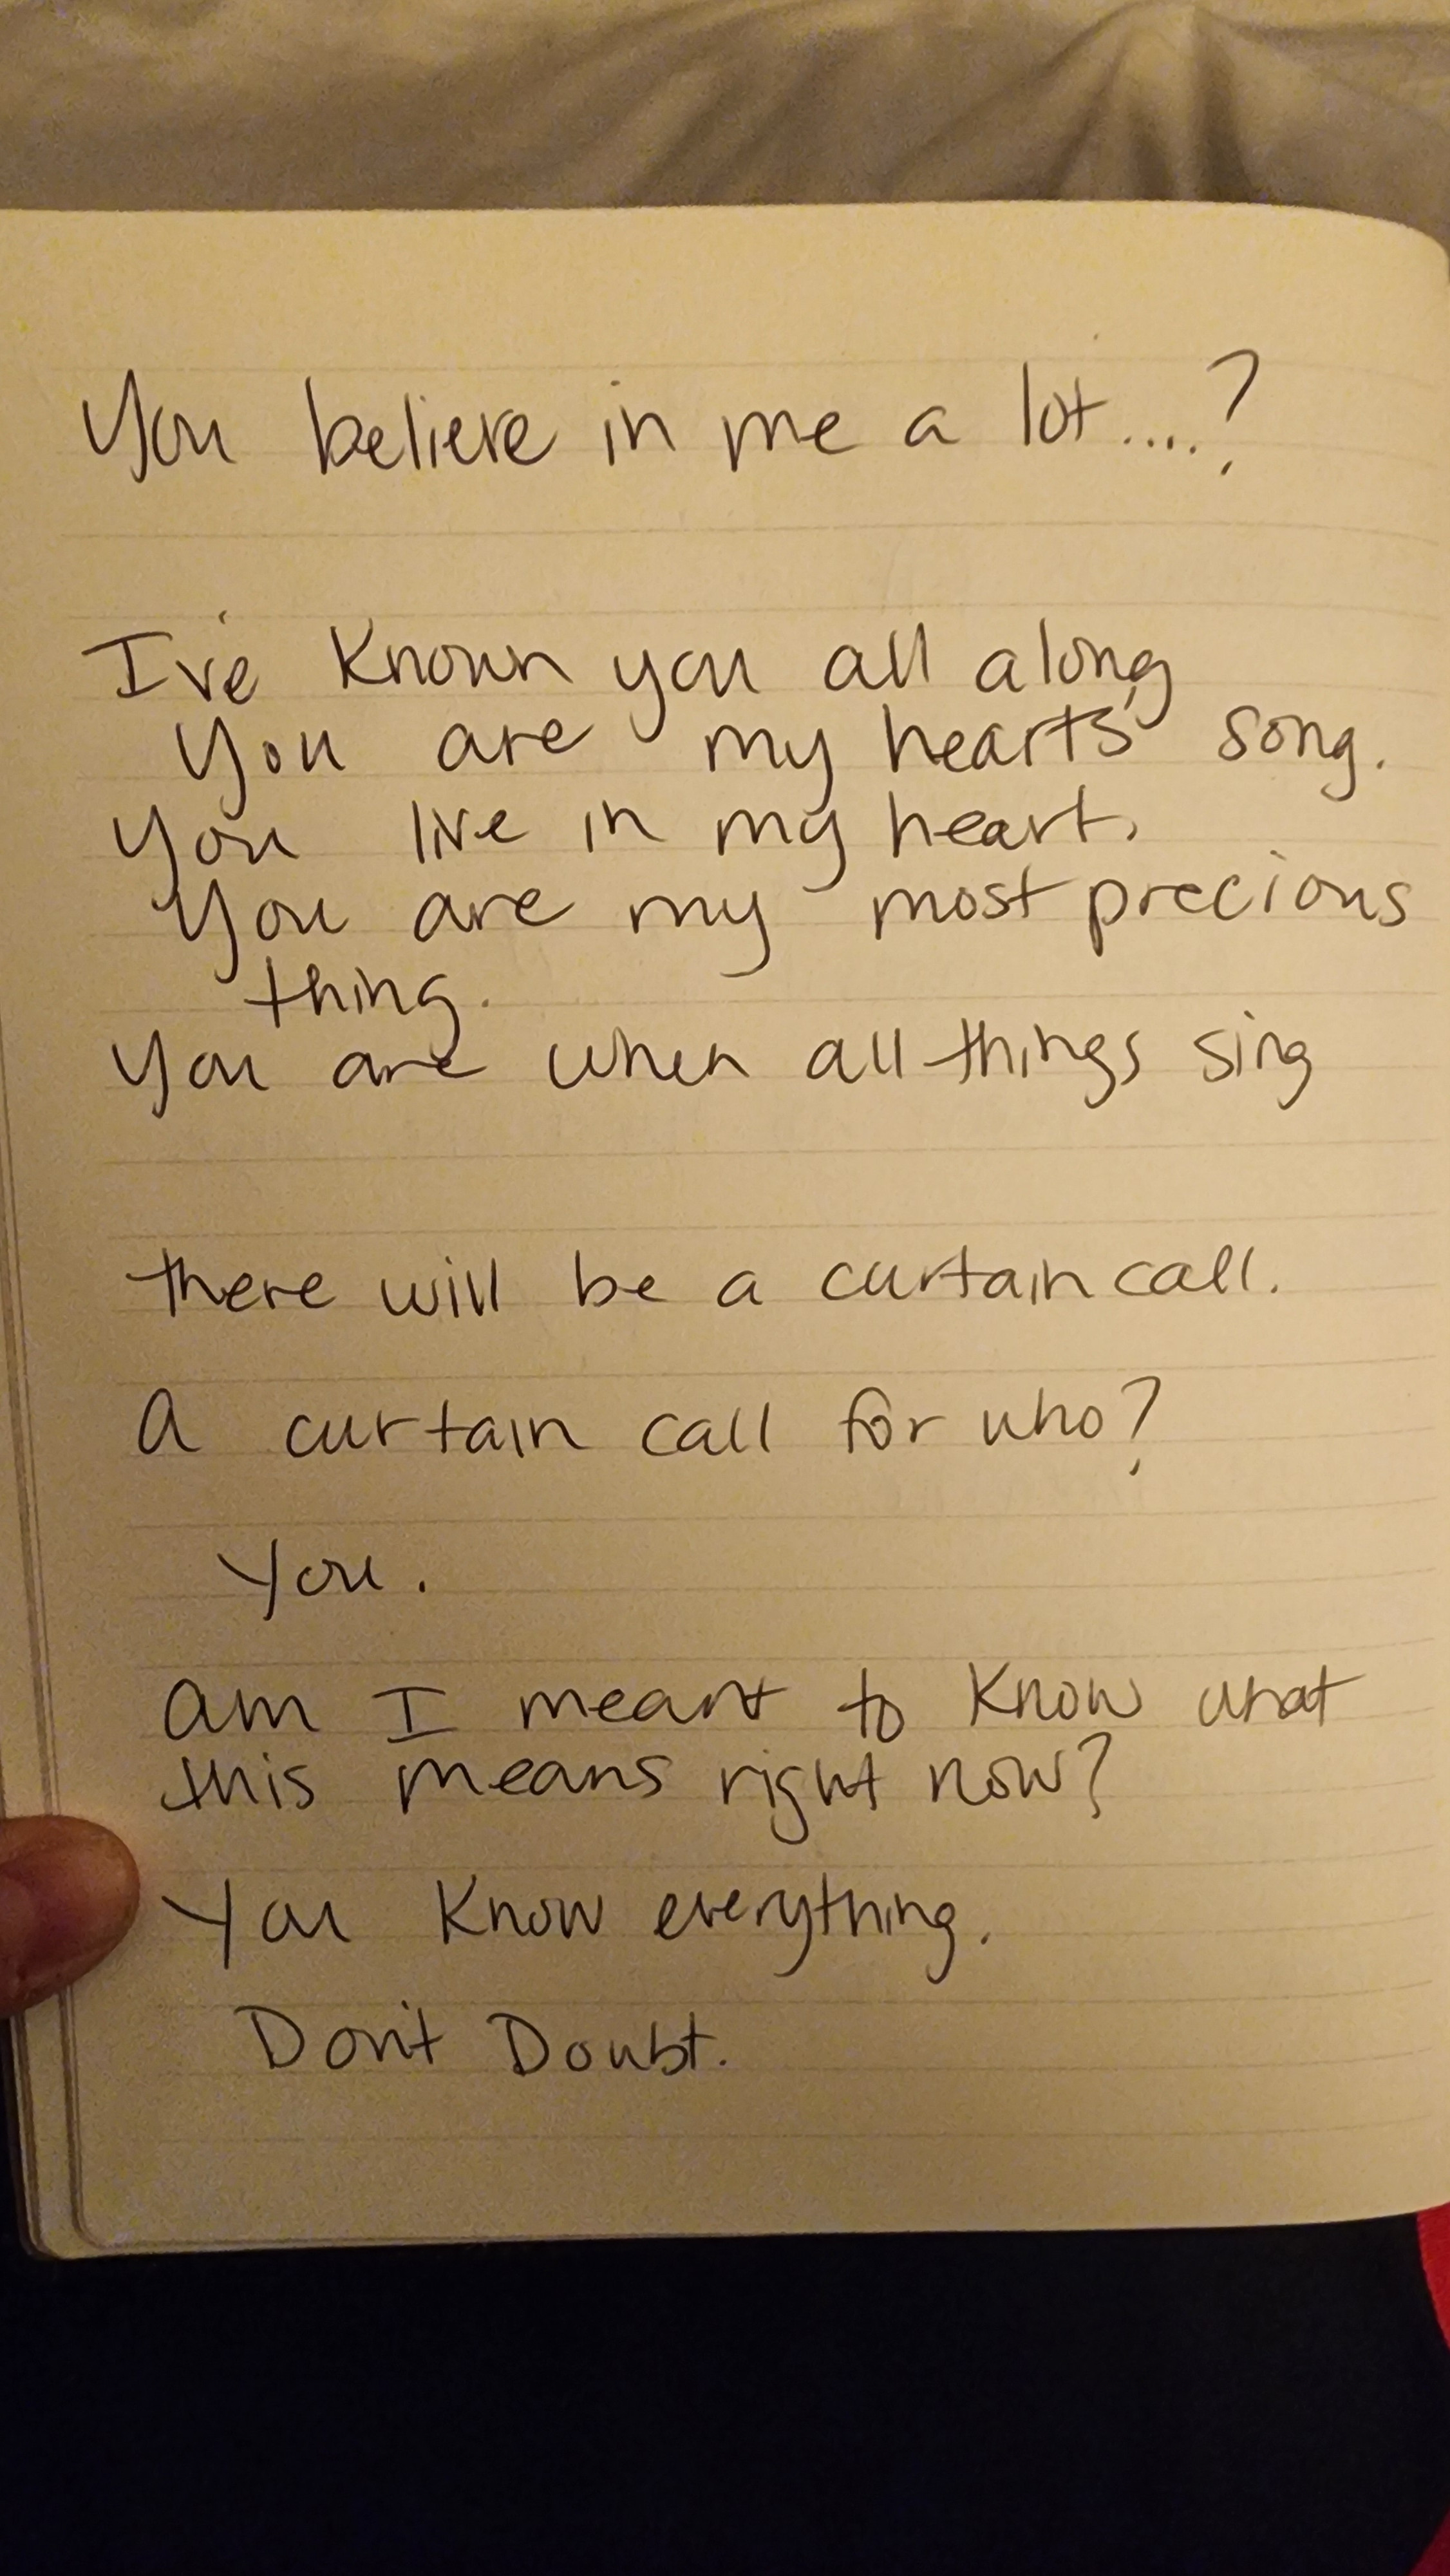 You believe in me a lot....?
I've known you all along
You are my hearts song.
You live in my heart.
You are my most precious
thing.
You are when all things sing
there will be a curtain call.
A curtain call for who?
You.
am I meant to know what
this means right now?
You know everything.
Don't Doubt.